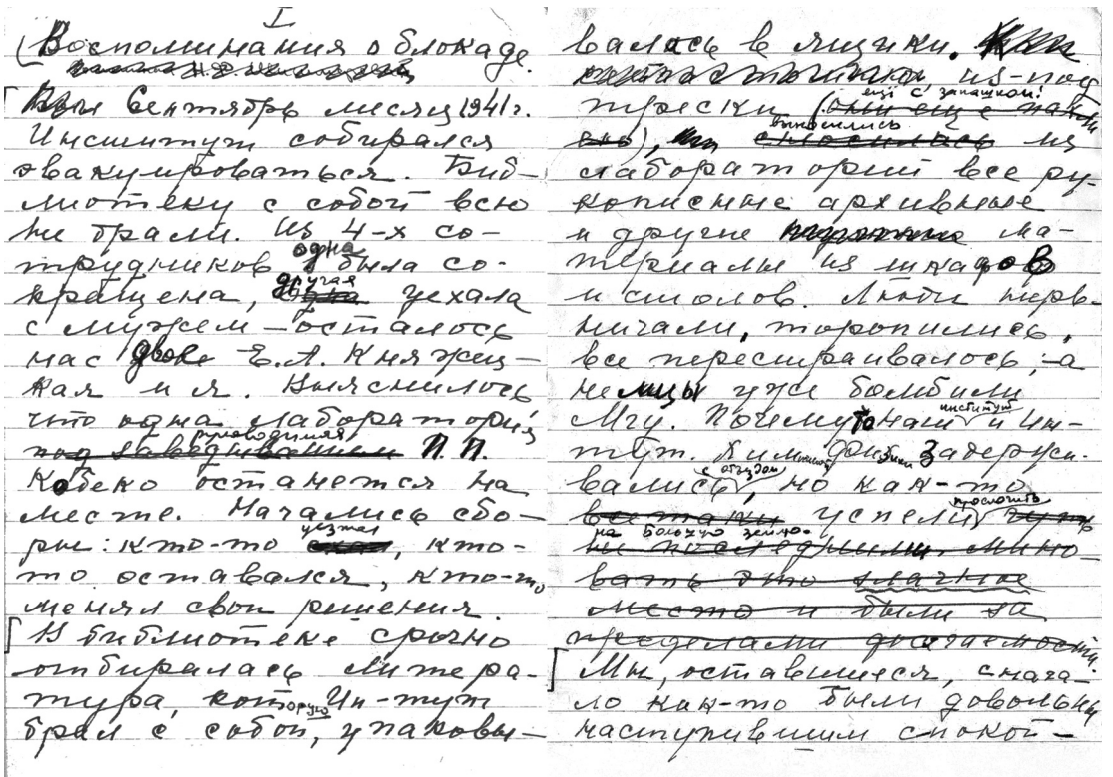 I
(Воспоминания о блокаде.
Был Сентябрь месяц 1941 г.
Институт собирался
эвакуироваться. Биб-
лиотеку с собой всю
не брали. Из 4-х со-
трудников одна была со-
кращена, другая уехала
с мужем – осталось
нас двое Е.А. Княжец-
кая и я. Выяснилось,
что одна лаборатория,
руководимая
под заведыванием П.П.
Кобеко останется на
месте. Начались сбо-
ры: кто-то уезжал, кто-
то оставался, кто-то
менял свои решения.
В библиотеке срочно
отбиралась литера-
тура, которую Ин-тут
брал с собой, упаковы-
валась в ящики.
из-под
трески (ещё с запашком!
они ещё
), выносились из
лабораторий все ру-
кописные архивные
и другие ма-
териалы из шкафов
и столов. Люди нерв-
ничали, торопились,
все перестраивалось, – а
немцы уже бомбили
Мгу. Почему то наш институт и Ин-
тут. Хим физики задержи-
вались с отъездом, но как-то
все таки успели проскочить
на Большую землю.
не последними мино
вать это злачное
место и были за
пределами досягаемости.
Мы, оставшиеся, снача-
ло как-то были довольны
наступившим спокой-